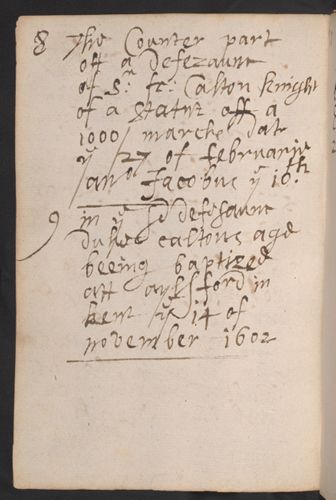 8 The Counter part
off a Defezaunc
of Sr: fr: Calton knight
of a Statut off a
1000 / marcke Dat
ye / 27 of februarie
/ ano Jacobus ye 16th
9 in ye sd defesaunc
Dukes caltons age
beeing baptized
att aylsford in
kent ye 14 of
november 1602